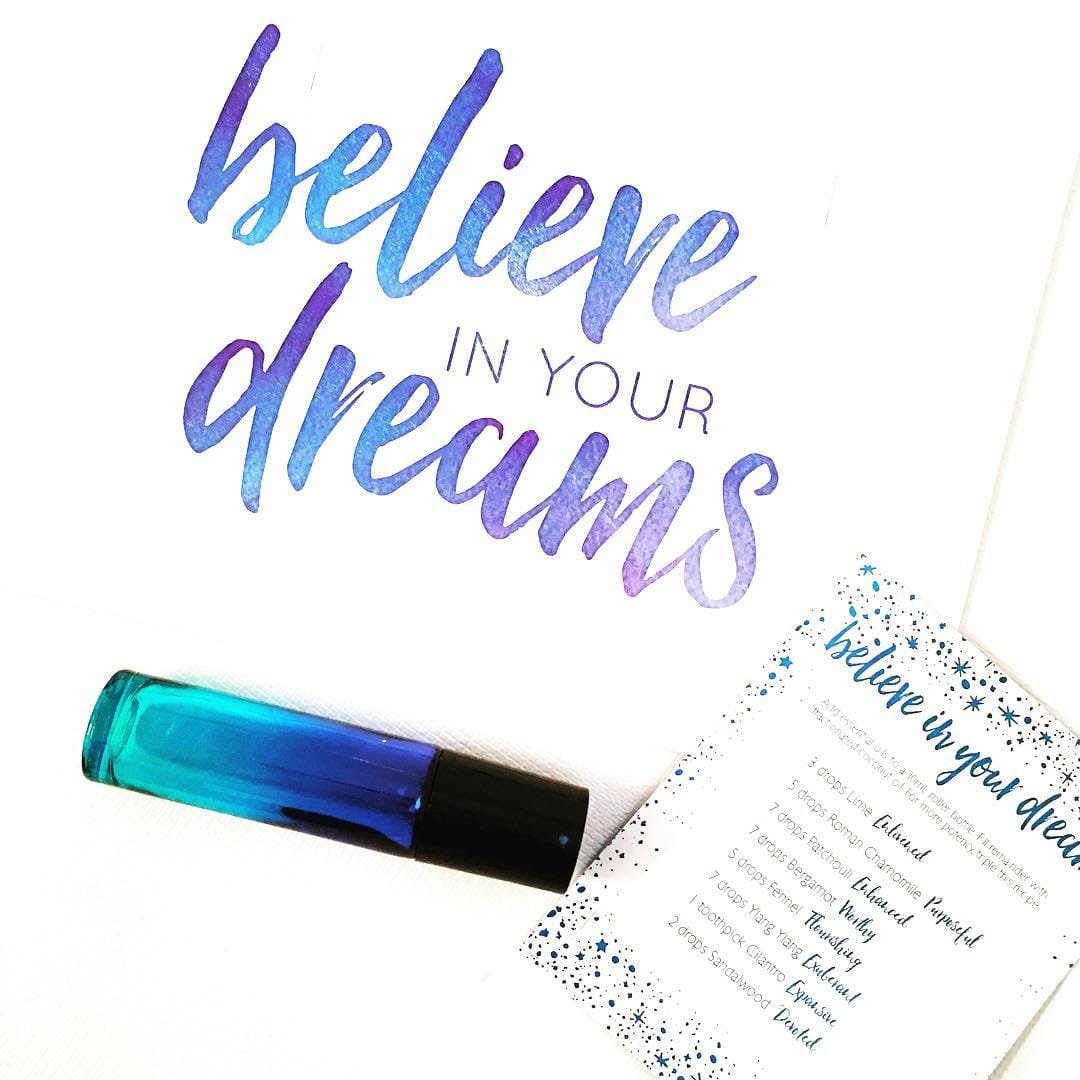 believe
IN YOUR
dreams
believe in your dream
Add essential oils to a 10ml roller bottle. Fill remainder with
fractionated coconut oil. For more potency, triple this recipe.
3 drops Lime Enlivened
5 drops Roman Chamomile Purposeful
7 drops Patchouli Enhanced
7 drops Bergamot Worthy
5 drops Fennel Flourishing
7 drops Ylang Ylang Exuberant
1 toothpick Cilantro Expansive
2 drops Sandalwood Devoted